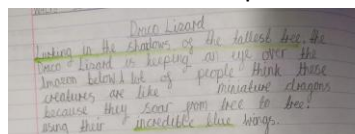 Draco Lizard
Lurking in the shadows of the tallest tree, the
Draco Lizard is keeping an eye over the
Amazon below. A lot of people think these
creatures are like miniature dragons
because they soar from tree to tree!
using their incredible blue wings.